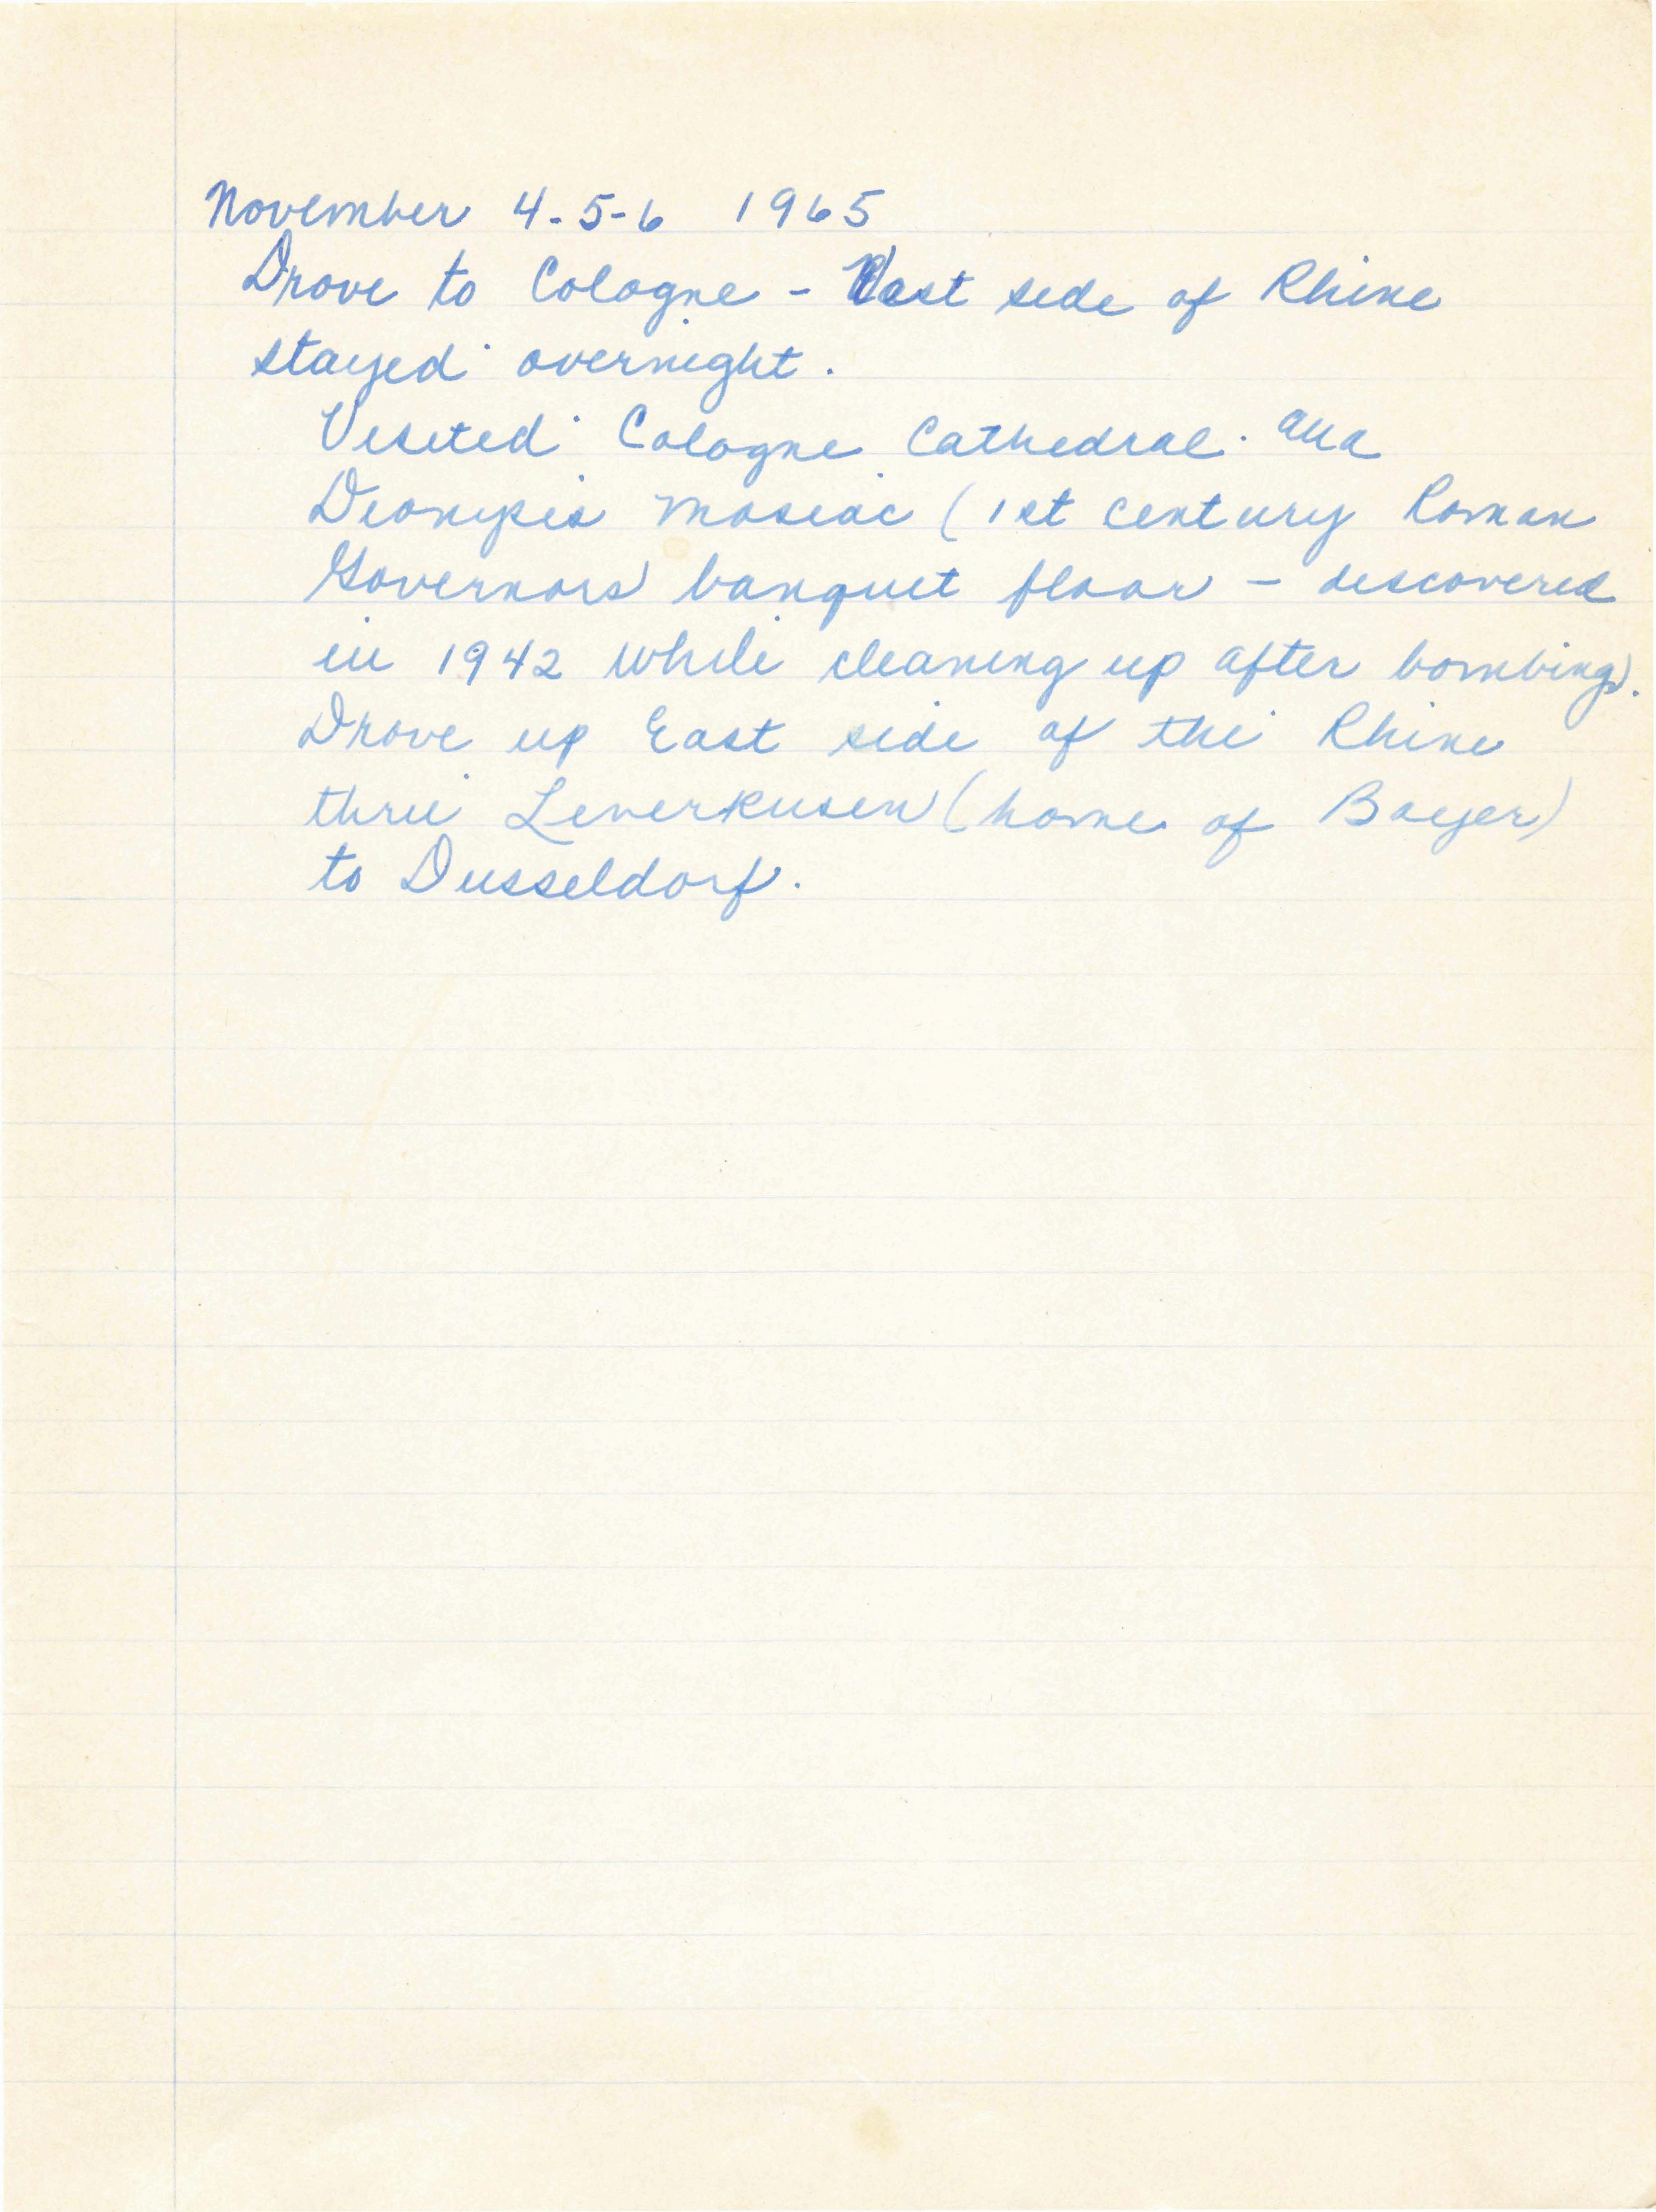 November 4-5-6 1965
Drove to Cologne - side of Rhine
stayed overnight.
Visited Cologne Cathedral. and
Dionysis Mosiac (1st century Roman
Governors banquet floor - discovered
in 1942 while cleaning up after bombing).
Drove up East side of the Rhine
thru Leverkusen (home of Bayer)
to Dusseldorf.